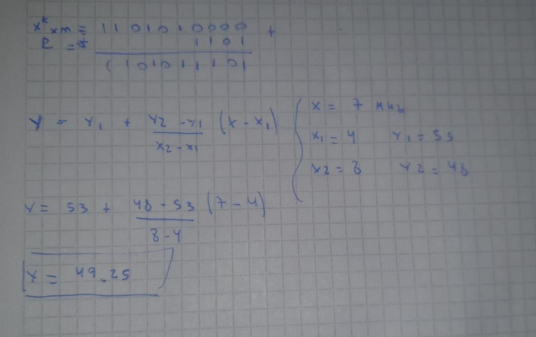 x^k xm = 1101010000 +
R = 1101
1101011101
Y = Y1 + Y2 - Y1 / X2 - X1 (X - X1)
X = 7 MHz
X1 = 4 Y1 = 53
X2 = 8 Y2 = 48
Y = 53 + 48 - 53 / 8 - 4 (7 - 4)
Y = 49.25